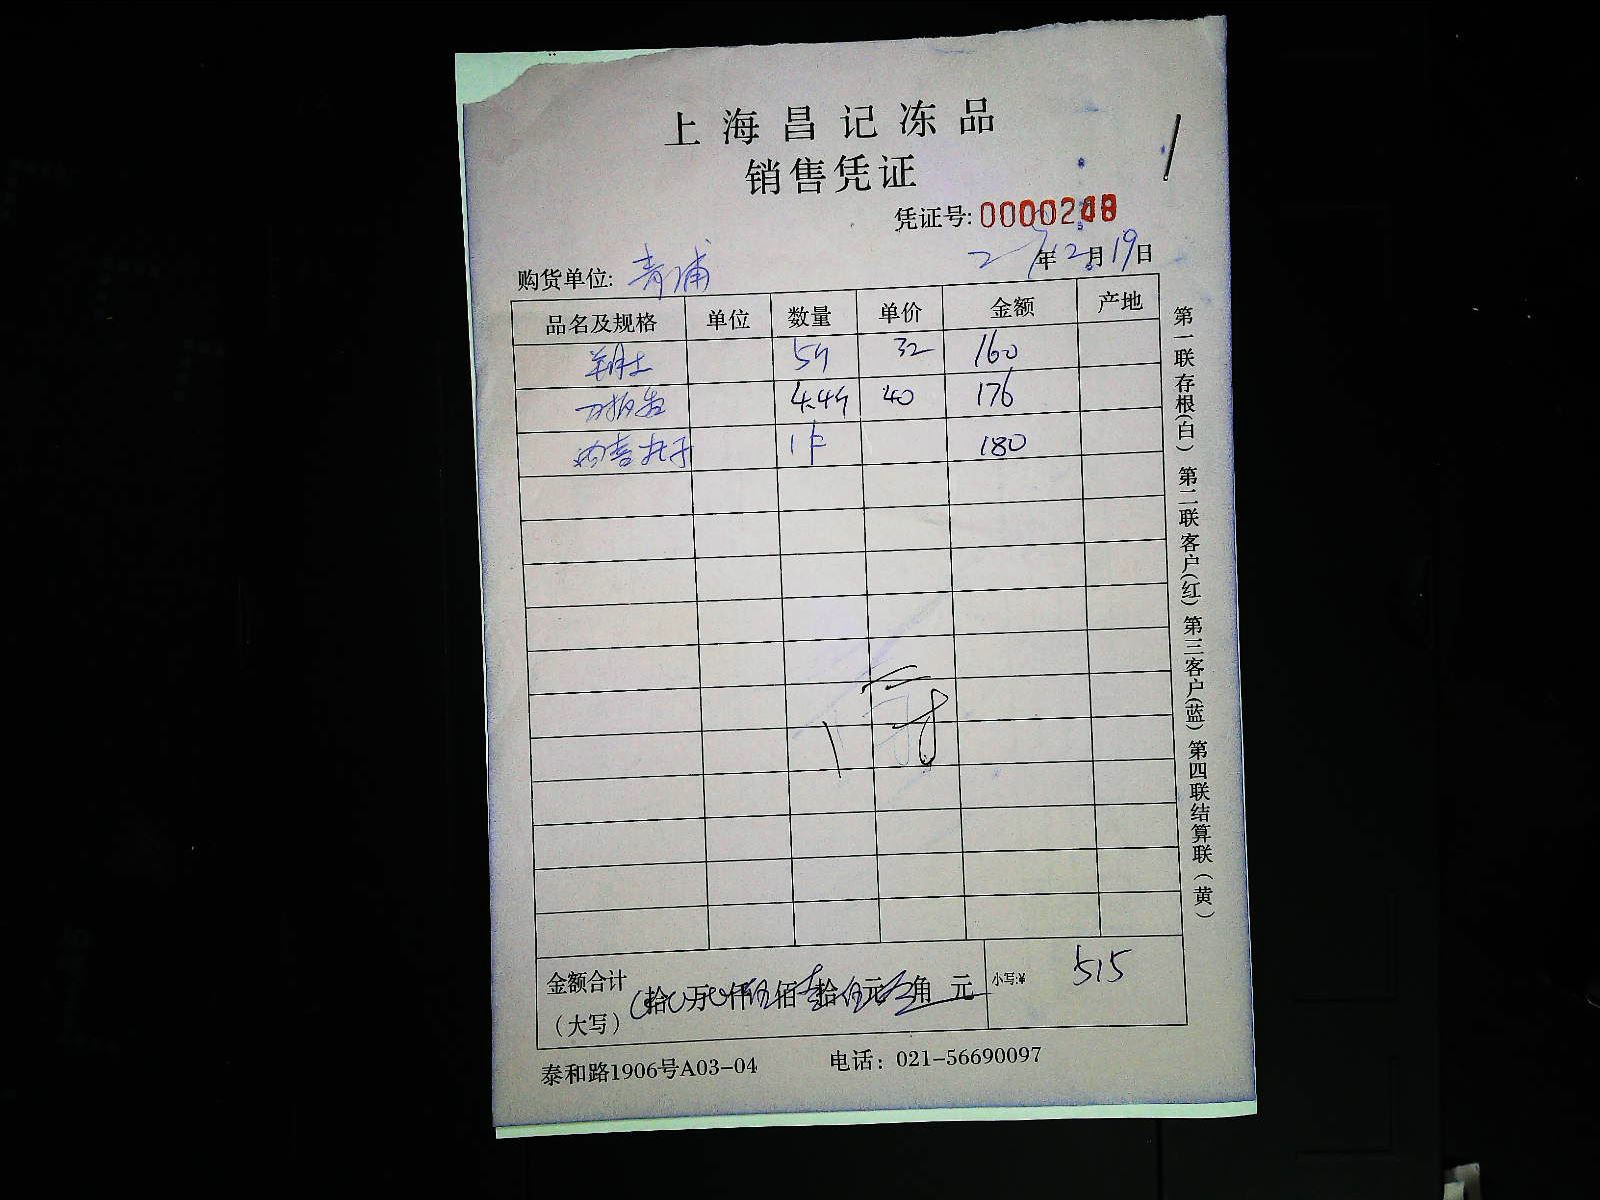 上海昌记冻品
销售凭证
凭证号:
年2月19日
购货单位: 青浦
品名及规格 单位 数量 单价 金额 产地
5斤 32 160
4.4斤 40 176
1件 180
金额合计
（大写） 拾 万 仟伍佰壹拾伍元 角 元 小写:¥ 515
泰和路1906号A03-04 电话：021-56690097
第一联存根(白) 第二联客户(红) 第三客户(蓝) 第四联结算联(黄)